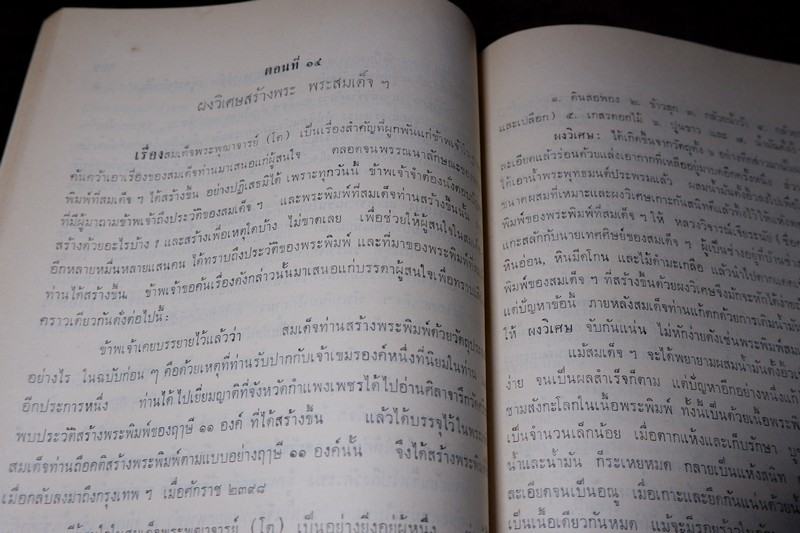 ตอนที่ ๑๔
ผงวิเศษสร้างพระ พระสมเด็จ ฯ
เรื่องสมเด็จพระพุฒาจารย์ (โต) เป็นเรื่องสำคัญที่ผูกพันแก่ข้าพเจ้า
ค้นคว้าเอาเรื่องของสมเด็จท่านมาเสนอแก่ผู้สนใจ ตลอดจนพรรณนาลักษณะของ
พิมพ์ที่สมเด็จ ฯ ได้สร้างขึ้น อย่างปฏิเสธมิได้ เพราะทุกวันนี้ ข้าพเจ้าจำต้องนั่งตอบ
ที่มีผู้มาถามข้าพเจ้าถึงประวัติของสมเด็จ ฯ และพระพิมพ์ที่สมเด็จท่านสร้างขึ้นนั้น
สร้างด้วยอะไรบ้าง ! และสร้างเพื่อเหตุใดบ้าง ไม่ขาดเลย เพื่อช่วยให้ผู้สนใจใน
อีกหลายหมื่นหลายแสนคน ได้ทราบถึงประวัติของพระพิมพ์ และที่มาของพระพิมพ์ที่
ท่านได้สร้างขึ้น ข้าพเจ้าขอค้นเรื่องดังกล่าวนั้นมาเสนอแก่บรรดาผู้สนใจเพื่อทราบ
คราวเดียวกันดังต่อไปนี้:
ข้าพเจ้าเคยบรรยายไว้แล้วว่า สมเด็จท่านสร้างพระพิมพ์ด้วยวัตถุประ
อย่างไร ในฉบับก่อน ๆ คือด้วยเหตุที่ท่านรับปากกับเจ้าเขมรองค์หนึ่งที่นิยมในท่าน
อีกประการหนึ่ง ท่านได้ไปเยี่ยมญาติที่จังหวัดกำแพงเพชรได้ไปอ่านศิลาจารึกวัด
พบประวัติสร้างพระพิมพ์ของฤๅษี ๑๑ องค์ ที่ได้สร้างขึ้น แล้วได้บรรจุไว้ใน
สมเด็จท่านถือคติสร้างพระพิมพ์ตามแบบอย่างฤๅษี ๑๑ องค์นั้น จึงได้สร้างพระ
เมื่อกลับลงมาถึงกรุงเทพ ฯ เมื่อศักราช ๒๓๙๘
ในสมเด็จพระพุฒาจารย์ (โต) เป็นอย่างยิ่งอยู่ผู้หนึ่ง
๑. ดินสอพอง ๒. ข้าวสุก ๓. กล้วยน้ำว้า ๔. กล้วย
และเปลือก) ๕. เกสรดอกไม้ ๖. ปูนขาว และ ๗. น้ำมัน
ผงวิเศษ: ได้เกิดขึ้นจากวัตถุทั้ง ๗ อย่างดังกล่าวมา
ละเอียดแล้วร่อนด้วยแล่งเอากากที่เหลืออยู่มาบดอีกครั้งหนึ่ง
ได้เอาน้ำพระพุทธมนต์ประพรมแล้ว ผสมน้ำมันตั้งอิ้วลงไปเพื่อ
ขนาดผสมที่เหมาะและผงวิเศษเกาะกันสนิทดีแล้วทิ้งไว้ให้แห้ง
พิมพ์ของพระพิมพ์ที่สมเด็จ ฯ ให้ หลวงวิจารณ์เจียระนัย
แกะสลักกับนายเทศศิษย์ของสมเด็จ ฯ ผู้เป็นช่างอยู่ที่บ้านช่าง
หินอ่อน, หินมีดโกน และไม้ดำมะเกลือ แล้วนำไปตากแดด
พิมพ์ของสมเด็จ ฯ ที่สร้างขึ้นด้วยผงวิเศษจึงมักจะหักได้ง่าย
แต่ปัญหาข้อนี้ ภายหลังสมเด็จท่านแก้ตกด้วยการเติมน้ำมัน
ให้ ผงวิเศษ จับกันแน่น ไม่หักง่ายดังเช่นพระพิมพ์
แม้สมเด็จ ฯ จะได้พยายามผสมน้ำมันตั้งอิ้ว
ง่าย จนเป็นผลสำเร็จก็ตาม แต่ปัญหาอีกอย่างหนึ่ง
ชามสังกะโลกในเนื้อพระพิมพ์ ทั้งนี้เป็นด้วยเนื้อพระ
เป็นจำนวนเล็กน้อย เมื่อตากแห้งและเก็บรักษา
น้ำและน้ำมัน ก็ระเหยหมด กลายเป็นแห้งสนิท
ละเอียดจนเป็นอณู เมื่อเกาะและยึดกันแน่นด้วย
เป็นเนื้อเดียวกันหมด แม้จะมีรอยร้าว